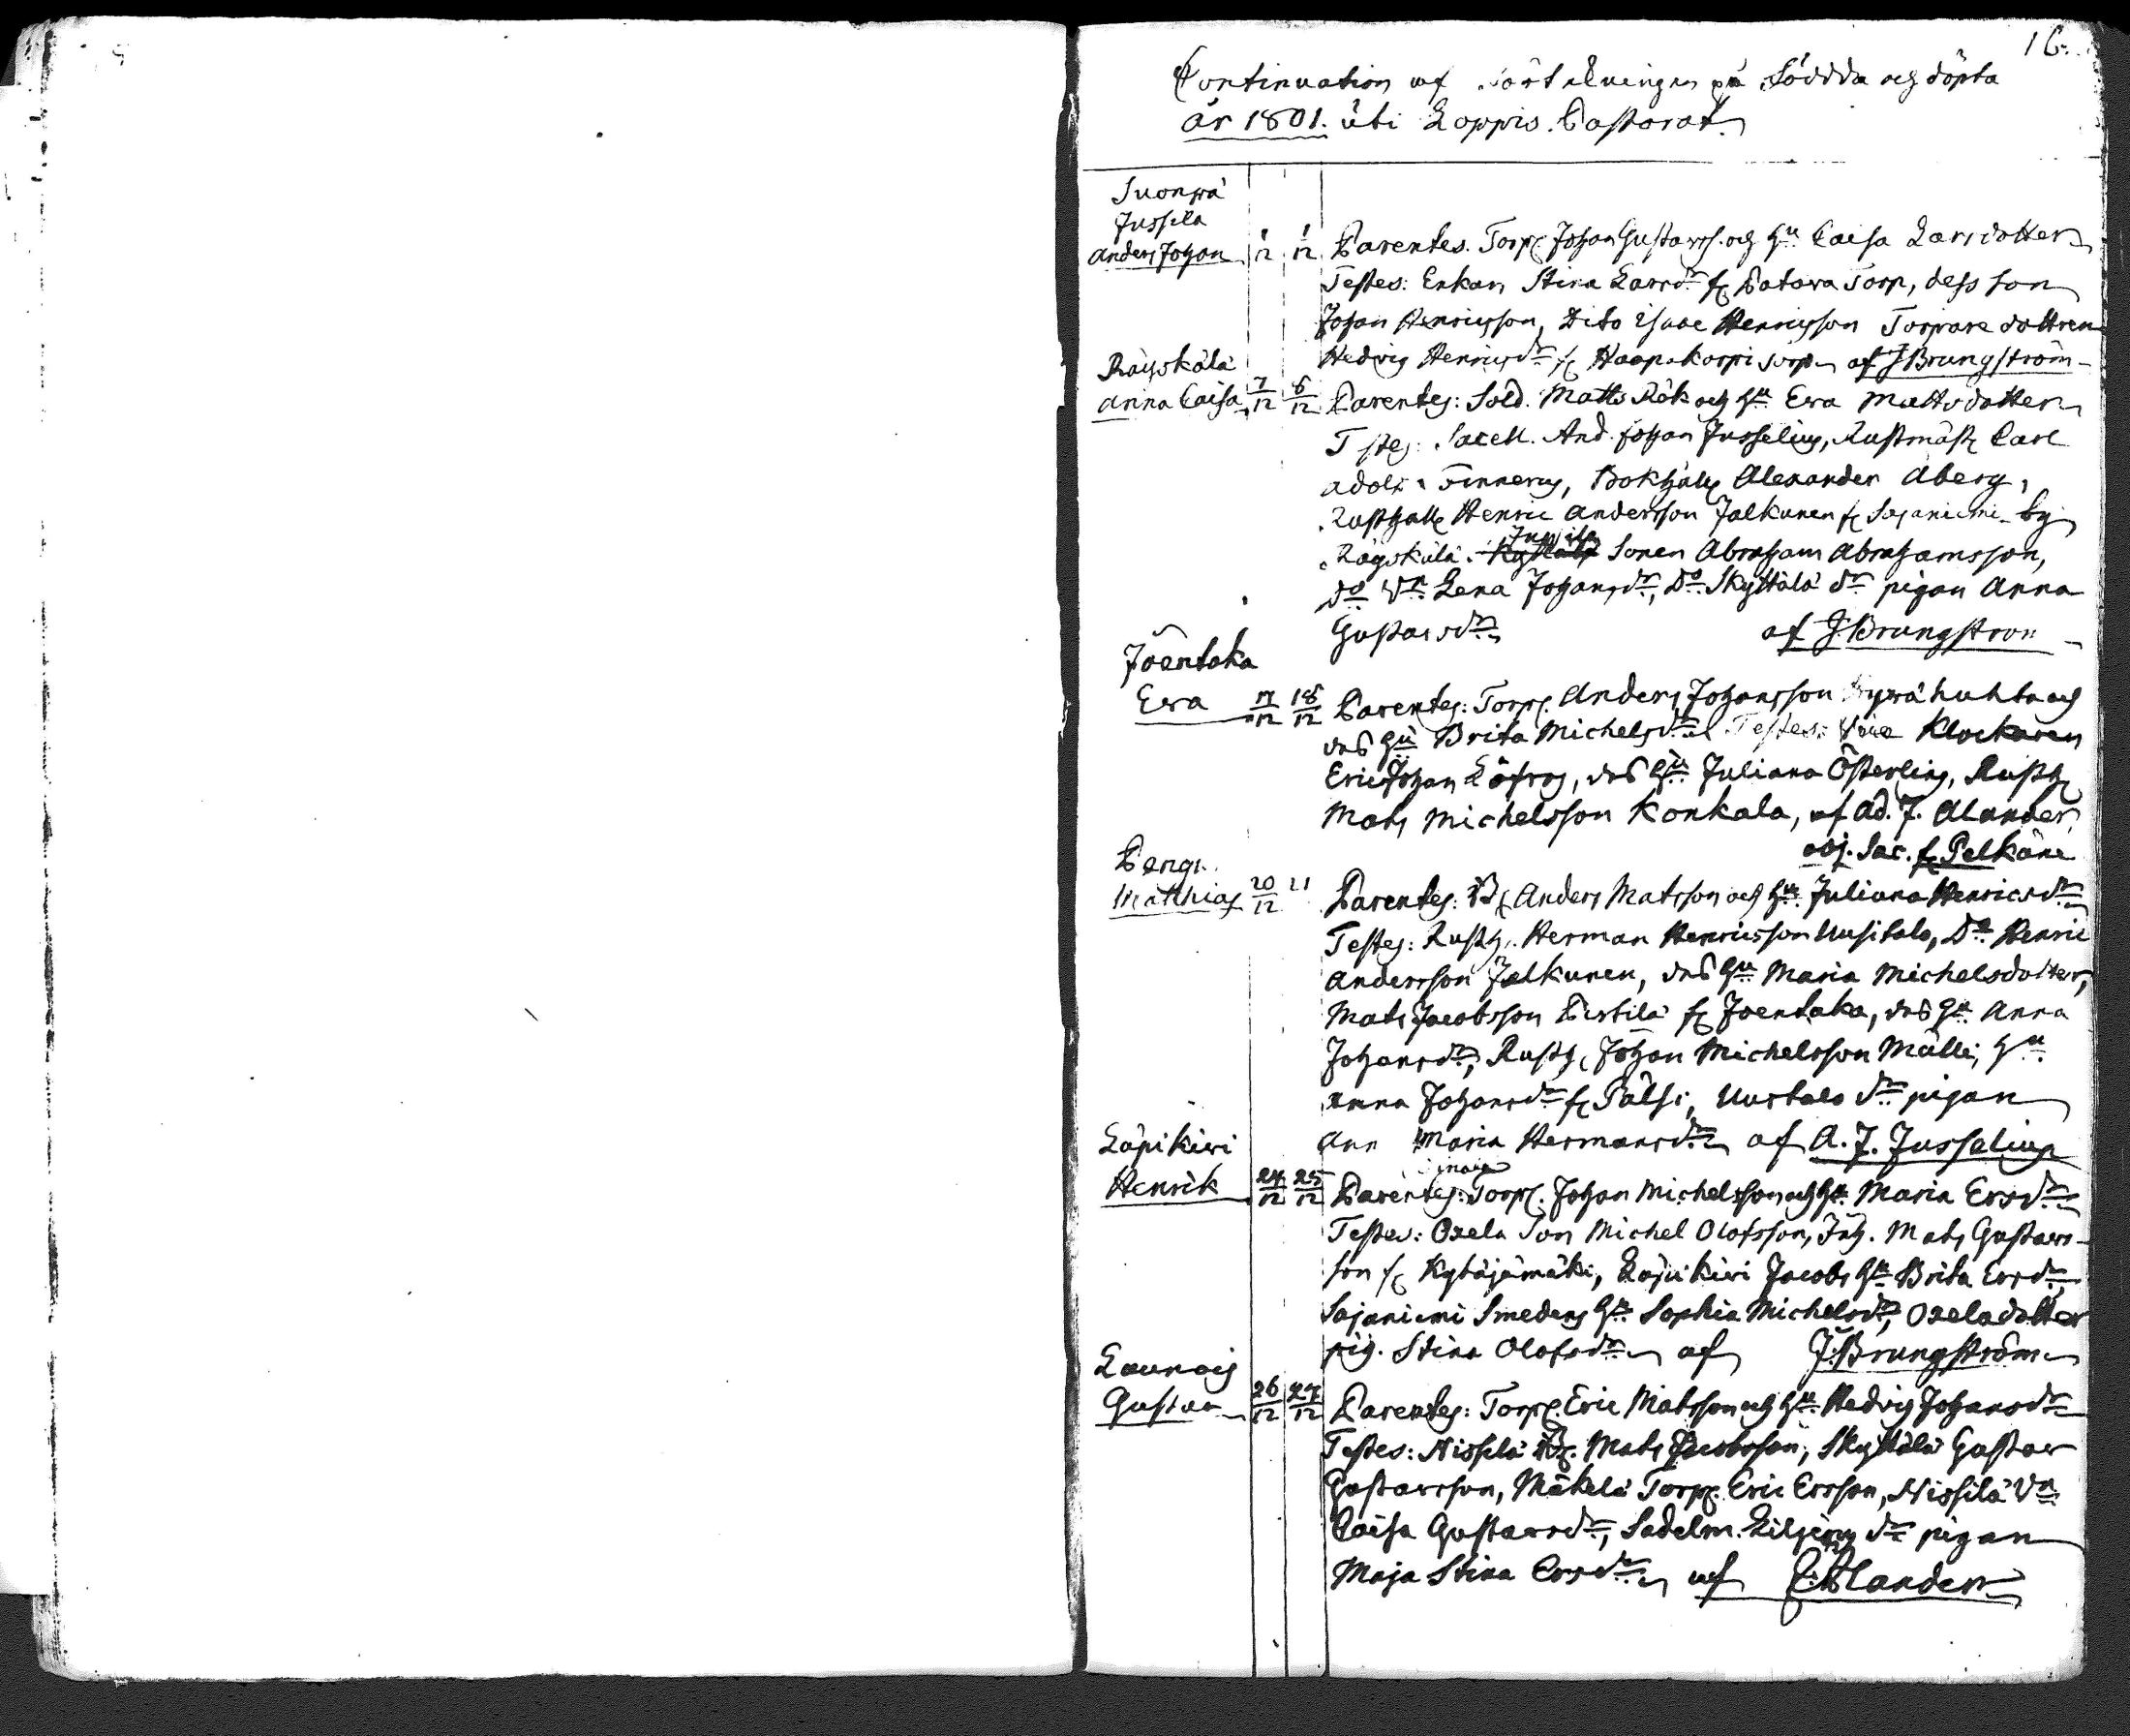 16.
Continuation af Förtekningen på Födda och döpta
år 1801. uti Loppis Pastorat.
Suonpä
Jussila
Anders Johan 1/12 1/12 Parentes. Torp. Johan Gustafss. och Hu. Caisa Larsdotter
Testes: Enkan Stina Larsdr fr. Patava Torp, dess son
Johan Henricsson, Dito Isaac Henricsson Torpare dottren
Hedvig Henricsdr fr. Haapakorpi torp af J Brungström
Räyskälä
Anna Caisa 7/12 8/12 Parentes: Sold. Matts Rök och Hu Eva Mattsdotter
Testes: Sacell. And. Johan Jusselius, Rustmäst. Carl
Adolf Finnerus, Bokhåll. Alexander Åberg,
Rusthåll. Henric Andersson Jalkunen fr. Sajaniemi by
Räyskälä Sonen Abraham Abrahamsson,
do Lena Johansdr, Do Skyttälä dr pigan Anna
Gustafsdr af J Brungström
Joentaka
Eva 17/12 18/12 Parentes: Torp. Anders Johansson och
dess Hu Brita Michelsdr Testes: Klockaren
Eric Johan Löfroos, dess Hu Juliana Österling, Rusth.
Mats Michelsson Konkala, af Ad. J. Alander
adj. Sac. fr. Pelkäne
Matthias 20/12 21 Parentes: Anders Matsson och Hu Juliana Henricsdr
Testes: Rusth. Herman Henricsson Uusitalo, Do Henric
Andersson Jalkunen, dess Hu Maria Michelsdotter,
Mats Jacobsson Pertilä fr. Joentaka, dess Hu Anna
Johansdr, Rusth. Johan Michelsson Mälli, Hu
Anna Johansdr fr. Pälsi, Uustalo dr pigan
Ann Maria Hermansdr af A. J. Jusselius
Läpikivi
Henrik 24/12 25/12 Parentes: Torp. Johan Michelsson och Hu Maria Ersdr
Testes: Oxela Son Michel Olofsson, Inh. Mats Gustavs-
son fr. Kytäjämäki, Läpikivi Jacobs Hu Brita Ersdr
Sajaniemi Smedens Hu Sophia Michelsdr, Oxela dotter
pig. Stina Olofsdr af J. Brungström
Launois
Gustav 26/12 27/12 Parentes: Torp. Eric Matsson och Hu Hedvig Johansdr
Testes: Nissilä Mats Jacobsson, Skyttälä Gustav
Gustavsson, Mäkelä Torp. Eric Ersson, Nissilä
Caisa Gustavsdr, Sadelm. Liljeroos dr pigan
Maja Stina Ersdr af E. Alander